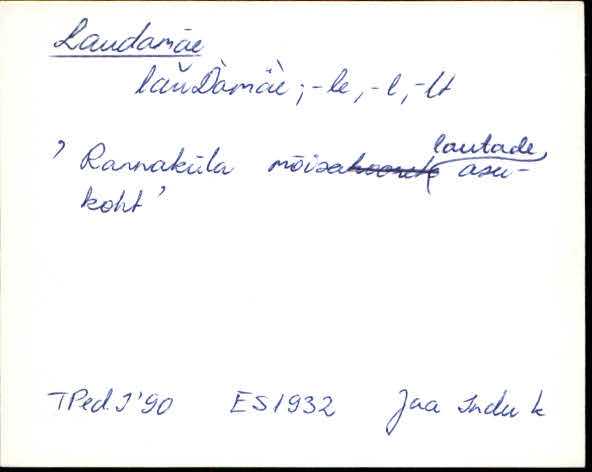 Laudamäe
laŭDàmäè; -le, -l, -lt
' Rannaküla mõisa lautade asu-
koht '
TPedI'90 ES 1932 Jaa Indu k